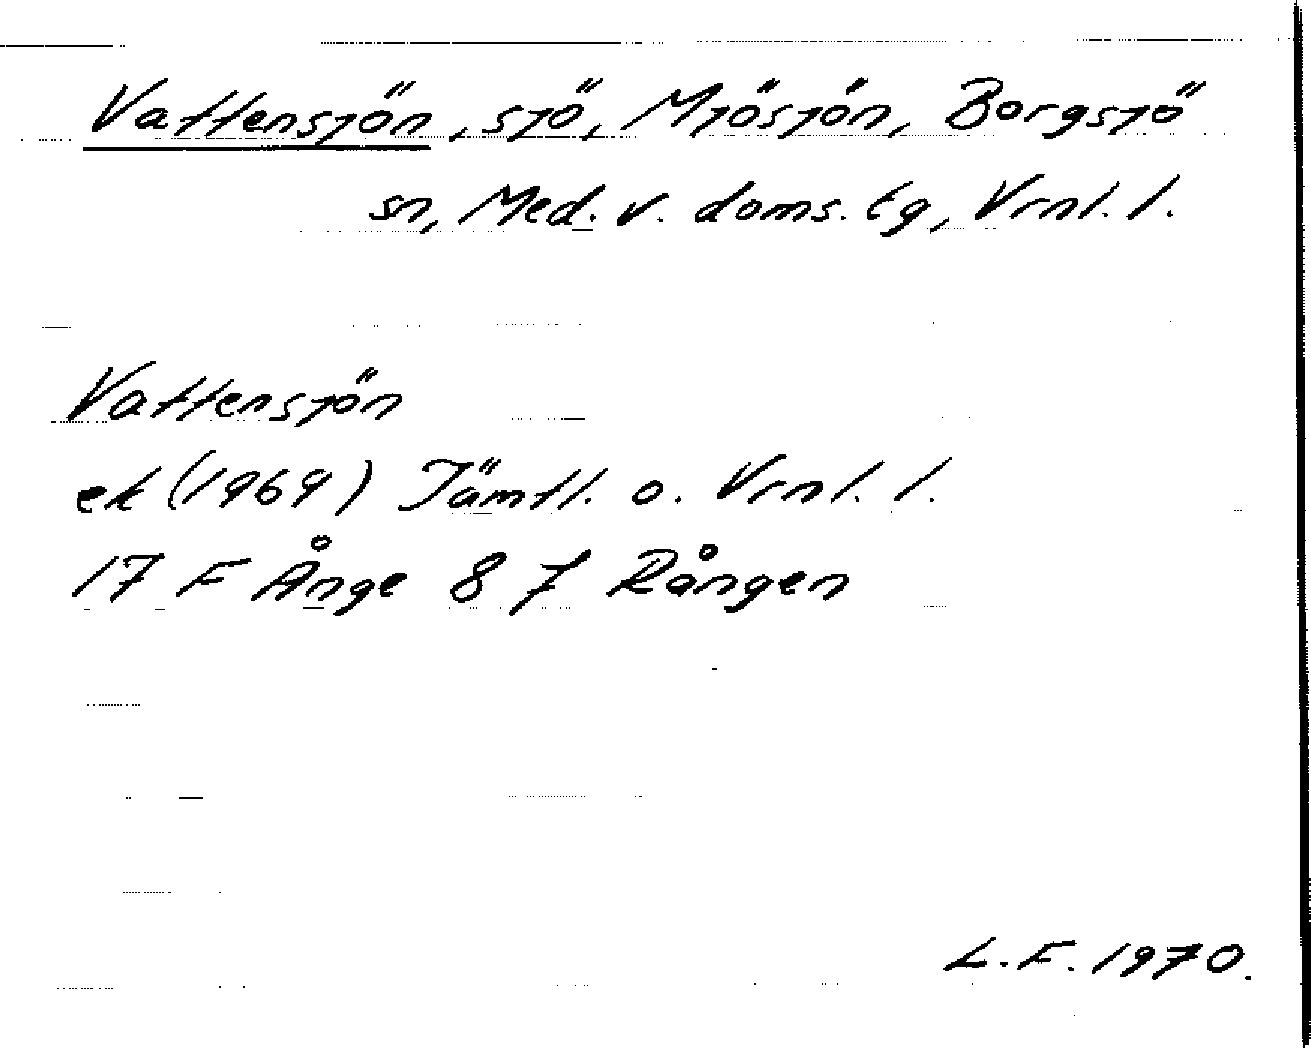 Vattensjön, sjö, Mjösjön, Borgsjö
sn, Med. v. doms. tg, Vrnl. l.
Vattensjön
ek (1969) Jämtl. o. Vrnl. l.
17 F Ånge 8 j Rången
L.F. 1970.